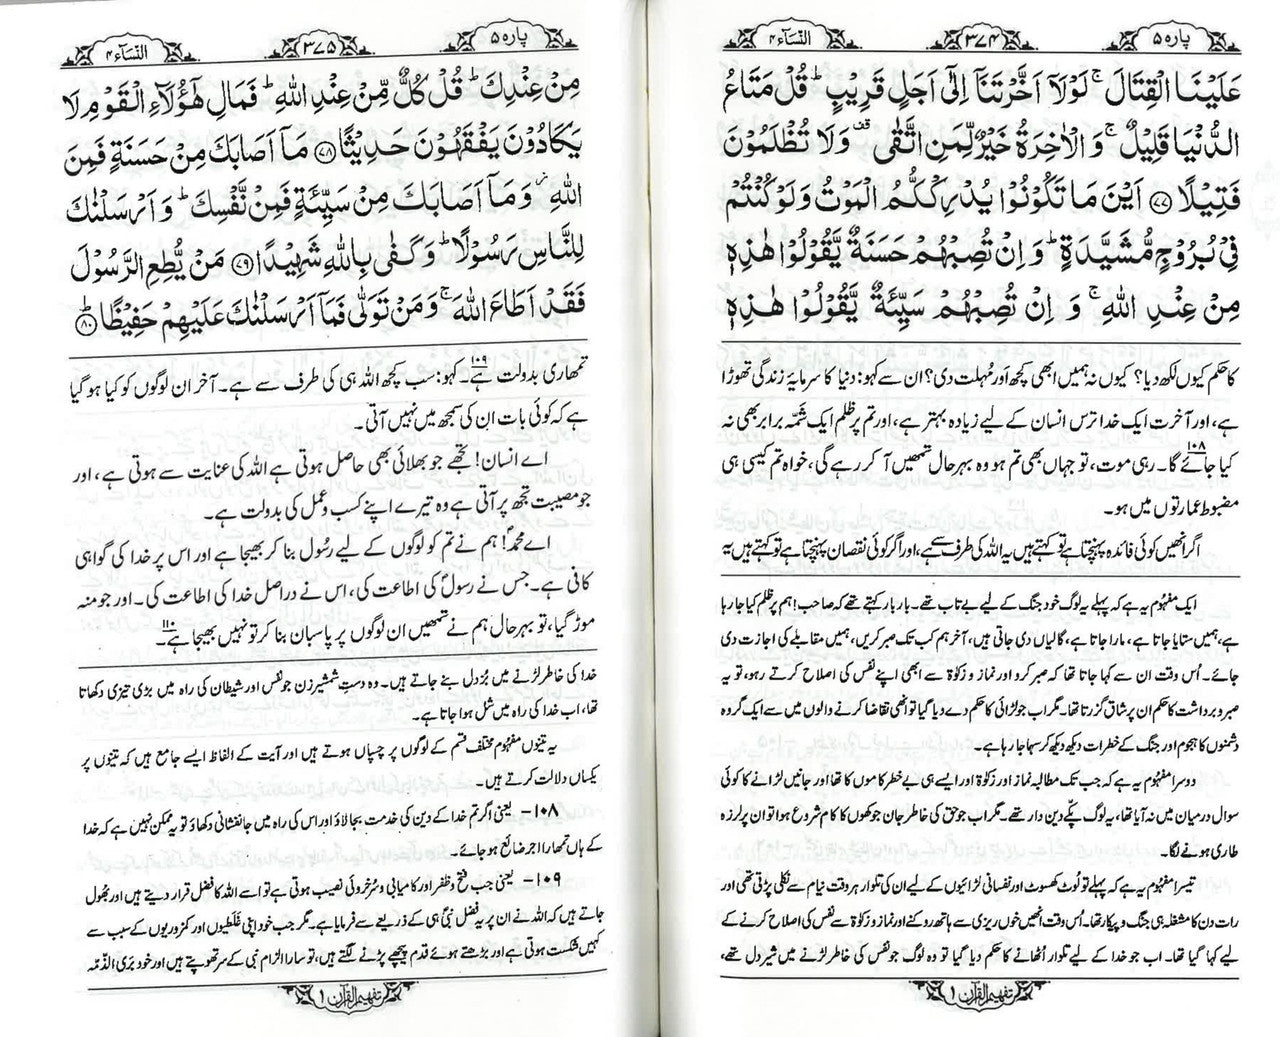 پارہ ۵
۳۷۴
النِّسَآء ۴
عَلَيْنَا الْقِتَالَ ۚ لَوْلَاۤ اَخَّرْتَنَاۤ اِلٰۤى اَجَلٍ قَرِيْبٍ ؕ قُلْ مَتَاعُ
الدُّنْيَا قَلِيْلٌ ۚ وَ الْاٰخِرَةُ خَيْرٌ لِّمَنِ اتَّقٰى ۫ وَ لَا تُظْلَمُوْنَ
فَتِيْلًا ﴿۷۷﴾ اَيْنَ مَا تَكُوْنُوْا يُدْرِكْكُّمُ الْمَوْتُ وَ لَوْ كُنْتُمْ
فِيْ بُرُوْجٍ مُّشَيَّدَةٍ ؕ وَ اِنْ تُصِبْهُمْ حَسَنَةٌ يَّقُوْلُوْا هٰذِهٖ
مِنْ عِنْدِ اللّٰهِ ۚ وَ اِنْ تُصِبْهُمْ سَيِّئَةٌ يَّقُوْلُوْا هٰذِهٖ
کا حکم کیوں لکھ دیا؟ کیوں نہ ہمیں ابھی کچھ اور مُہلت دی؟ ان سے کہو: دنیا کا سرمایۂ زندگی تھوڑا
ہے، اور آخرت ایک خدا ترس انسان کے لیے زیادہ بہتر ہے، اور تم پر ظلم ایک شمّہ برابر بھی نہ
کیا جائے گا۔۱۰۸ رہی موت، تو جہاں بھی تم ہو وہ بہرحال تمھیں آ کر رہے گی، خواہ تم کیسی ہی
مضبوط عمارتوں میں ہو۔
اگر انھیں کوئی فائدہ پہنچتا ہے تو کہتے ہیں یہ اللہ کی طرف سے ہے، اور اگر کوئی نقصان پہنچتا ہے تو کہتے ہیں یہ
ایک مفہوم یہ ہے کہ پہلے یہ لوگ خود جنگ کے لیے بے تاب تھے۔ بار بار کہتے تھے کہ صاحب! ہم پر ظلم کیا جا رہا
ہے، ہمیں ستایا جاتا ہے، مارا جاتا ہے، گالیاں دی جاتی ہیں، آخر ہم کب تک صبر کریں، ہمیں مقابلے کی اجازت دی
جائے۔ اُس وقت ان سے کہا جاتا تھا کہ صبر کرو اور نماز و زکوٰۃ سے ابھی اپنے نفس کی اصلاح کرتے رہو، تو یہ
صبر و برداشت کا حکم ان پر شاق گزرتا تھا۔ مگر اب جو لڑائی کا حکم دے دیا گیا تو انھی تقاضا کرنے والوں میں سے ایک گروہ
دشمنوں کا ہجوم اور جنگ کے خطرات دیکھ دیکھ کر سہما جا رہا ہے۔
دوسرا مفہوم یہ ہے کہ جب تک مطالبہ نماز اور زکوٰۃ اور ایسے ہی بے خطر کاموں کا تھا اور جانیں لڑانے کا کوئی
سوال درمیان میں نہ آیا تھا، یہ لوگ پکّے دین دار تھے۔ مگر اب جو حق کی خاطر جان جوکھوں کا کام شروع ہوا تو ان پر لرزہ
طاری ہونے لگا۔
تیسرا مفہوم یہ ہے کہ پہلے تو لُوٹ کھسوٹ اور نفسانی لڑائیوں کے لیے ان کی تلوار ہر وقت نیام سے نکلی پڑتی تھی اور
رات دن کا مشغلہ ہی جنگ و پیکار تھا۔ اُس وقت انھیں خوں ریزی سے ہاتھ روکنے اور نماز و زکوٰۃ سے نفس کی اصلاح کرنے کے
لیے کہا گیا تھا۔ اب جو خدا کے لیے تلوار اُٹھانے کا حکم دیا گیا تو وہ لوگ جو نفس کی خاطر لڑنے میں شیر دل تھے،
تفہیم القرآن ۱
پارہ ۵
۳۷۵
النِّسَآء ۴
مِنْ عِنْدِكَ ؕ قُلْ كُلٌّ مِّنْ عِنْدِ اللّٰهِ ؕ فَمَالِ هٰۤؤُلَآءِ الْقَوْمِ لَا
يَكَادُوْنَ يَفْقَهُوْنَ حَدِيْثًا ﴿۷۸﴾ مَاۤ اَصَابَكَ مِنْ حَسَنَةٍ فَمِنَ
اللّٰهِ ؗ وَ مَاۤ اَصَابَكَ مِنْ سَيِّئَةٍ فَمِنْ نَّفْسِكَ ؕ وَ اَرْسَلْنٰكَ
لِلنَّاسِ رَسُوْلًا ؕ وَ كَفٰى بِاللّٰهِ شَهِيْدًا ﴿۷۹﴾ مَنْ يُّطِعِ الرَّسُوْلَ
فَقَدْ اَطَاعَ اللّٰهَ ۚ وَ مَنْ تَوَلّٰى فَمَاۤ اَرْسَلْنٰكَ عَلَيْهِمْ حَفِيْظًا ﴿ؕ۸۰﴾
تمھاری بدولت ہے۔۱۰۹ کہو: سب کچھ اللہ ہی کی طرف سے ہے۔ آخر ان لوگوں کو کیا ہو گیا
ہے کہ کوئی بات ان کی سمجھ میں نہیں آتی۔
اے انسان! تجھے جو بھلائی بھی حاصل ہوتی ہے اللہ کی عنایت سے ہوتی ہے، اور
جو مصیبت تجھ پر آتی ہے وہ تیرے اپنے کسب و عمل کی بدولت ہے۔
اے محمدؐ! ہم نے تم کو لوگوں کے لیے رسُول بنا کر بھیجا ہے اور اس پر خدا کی گواہی
کافی ہے۔ جس نے رسولؐ کی اطاعت کی، اس نے دراصل خدا کی اطاعت کی۔ اور جو منہ
موڑ گیا، تو بہرحال ہم نے تمھیں ان لوگوں پر پاسبان بنا کر تو نہیں بھیجا ہے۔۱۱۰
خدا کی خاطر لڑنے میں بُزدل بنے جاتے ہیں۔ وہ دستِ شمشیر زن جو نفس اور شیطان کی راہ میں بڑی تیزی دکھاتا
تھا، اب خدا کی راہ میں شل ہوا جاتا ہے۔
یہ تینوں مفہوم مختلف قسم کے لوگوں پر چسپاں ہوتے ہیں اور آیت کے الفاظ ایسے جامع ہیں کہ تینوں پر
یکساں دلالت کرتے ہیں۔
۱۰۸- یعنی اگر تم خدا کے دین کی خدمت بجا لاؤ اور اس کی راہ میں جانفشانی دکھاؤ تو یہ ممکن نہیں ہے کہ خدا
کے ہاں تمھارا اجر ضائع ہو جائے۔
۱۰۹- یعنی جب فتح و ظفر اور کامیابی و سُرخروئی نصیب ہوتی ہے تو اسے اللہ کا فضل قرار دیتے ہیں اور بھُول
جاتے ہیں کہ اللہ نے ان پر یہ فضل نبیؐ ہی کے ذریعے سے فرمایا ہے۔ مگر جب خود اپنی غلطیوں اور کمزوریوں کے سبب سے
کہیں شکست ہوتی ہے اور بڑھتے ہوئے قدم پیچھے پڑنے لگتے ہیں، تو سارا الزام نبی کے سر تھوپتے ہیں اور خود بَری الذّمّہ
تفہیم القرآن ۱